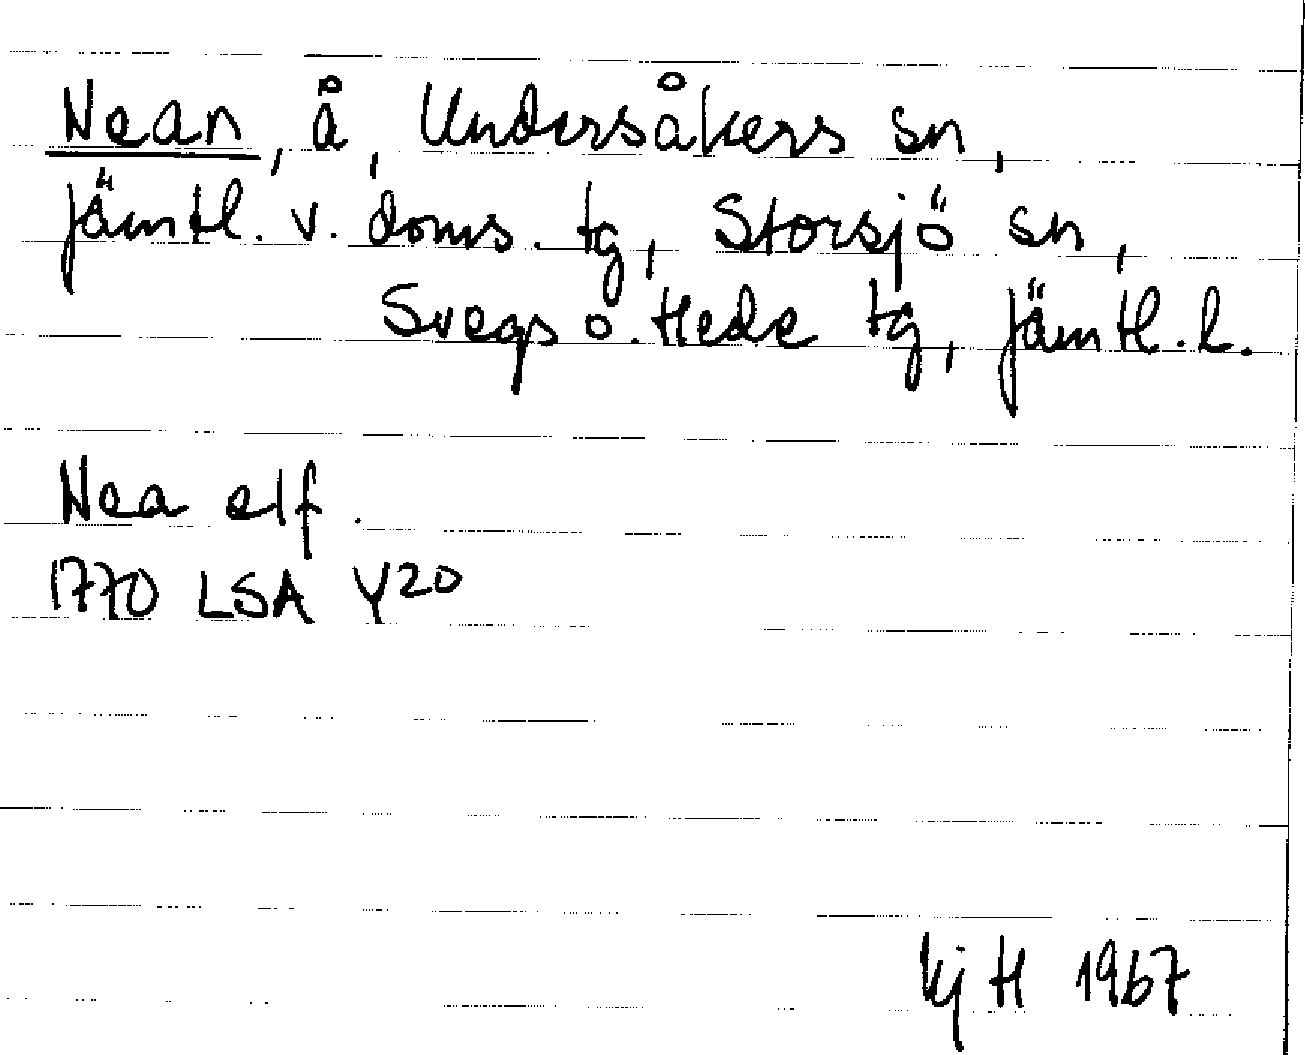 Nean, å, Undersåkers sn,
Jämtl. v. doms. tg, Storsjö sn,
Svegs o. Hede tg, Jämtl. l.
Nea elf.
1770 LSA Y20
Kj H 1967